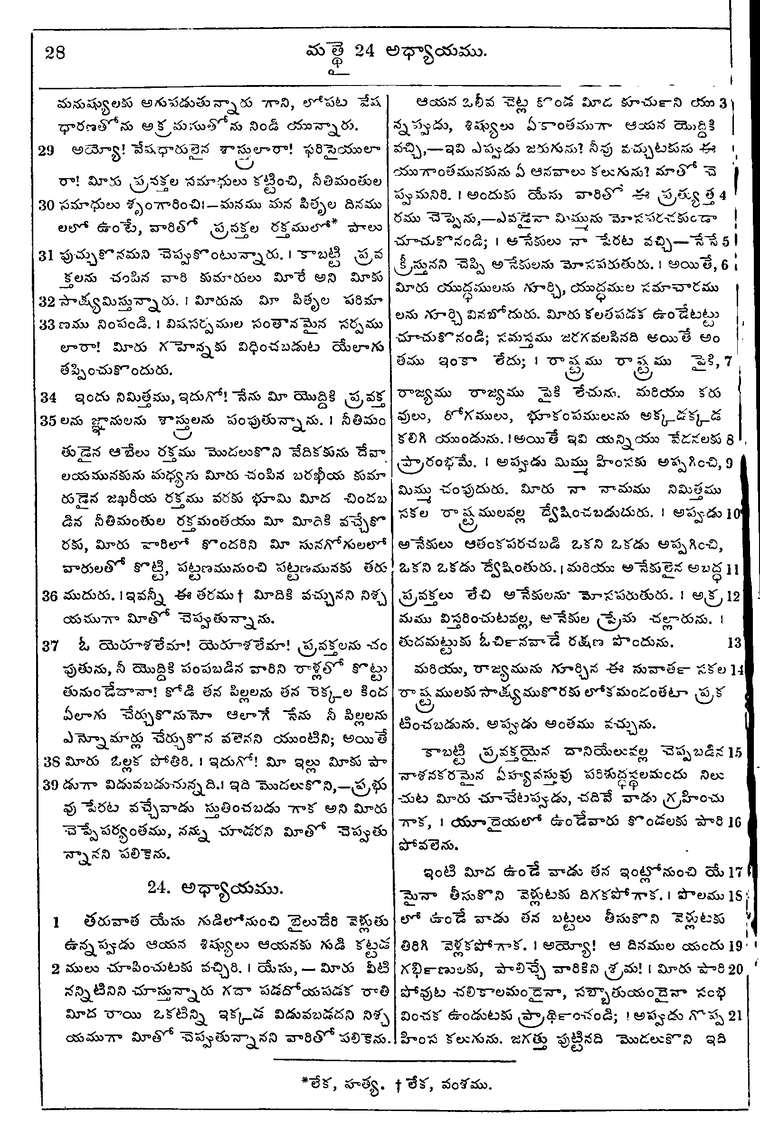 28
మత్తై 24 అధ్యాయము.
మనుష్యులకు అగుపడుతున్నారు గాని, లోపట వేష
ధారణతోను అక్రమసుతోను నిండి యున్నారు.
29 అయ్యో! వేషధారులైన శాస్త్రులారా! ఫరిసైయులా
రా! మీరు ప్రవక్తల సమాధులు కట్టించి, నీతిమంతుల
30 సమాధులు శృంగారించి:—మనము మన పితృల దినము
లలో ఉంటే, వారితో ప్రవక్తల రక్తములో* పాలు
31 పుచ్చుకొనమని చెప్పుకొంటున్నారు. । కాబట్టి ప్రవ
క్తలను చంపిన వారి కుమారులు మీరే అని మీకు
32 సాక్ష్యమిస్తున్నారు. । మీరును మీ పితృల పరిమా
33 ణము నింపండి. । విషసర్పముల సంతానమైన సర్పము
లారా! మీరు గహెన్నకు విధించబడుట యేలాగు
తప్పించుకొందురు.
34 ఇందు నిమిత్తము, ఇదుగో! నేను మీ యొద్దికి ప్రవక్త
35 లను జ్ఞానులను శాస్త్రులను పంపుతున్నాను. । నీతిమం
తుడైన ఆబేలు రక్తము మొదలుకొని వేదికకును దేవా
లయమునకును మధ్యను మీరు చంపిన బరఖీయ కుమా
రుడైన జఖరీయ రక్తము వరకు భూమి మీద చిందబ
డిన నీతిమంతుల రక్తమంతయు మీ మీదికి వచ్చేకొ
రకు, మీరు వారిలో కొందరిని మీ సునగోగులలో
వారులతో కొట్టి, పట్టణమునుంచి పట్టణమునకు తరు
36 ముదురు. । ఇవన్నీ ఈ తరము† మీదికి వచ్చునని నిశ్చ
యముగా మీతో చెప్పుతున్నాను.
37 ఓ యెరూశలేమా! యెరూశలేమా! ప్రవక్తలను చం
పుతును, నీ యొద్దికి పంపబడిన వారిని రాళ్లతో కొట్టు
తునుండేదానా! కోడి తన పిల్లలను తన రెక్కల కింద
ఏలాగు చేర్చుకొనునో ఆలాగే నేను నీ పిల్లలను
ఎన్నోమార్లు చేర్చుకొన వలెనని యుంటిని; అయితే
38 మీరు ఒల్లక పోతిరి. । ఇదుగో! మీ ఇల్లు మీకు పా
39 డుగా విడువబడుచున్నది. । ఇది మొదలుకొని,—ప్రభు
వు పేరట వచ్చేవాడు స్తుతించబడు గాక అని మీరు
చెప్పేపర్యంతము, నన్ను చూడరని మీతో చెప్పుతు
న్నానని పలికెను.
24. అధ్యాయము.
1 తరువాత యేసు గుడిలోనుంచి బైలుదేరి వెళ్లుతు
ఉన్నప్పుడు ఆయన శిష్యులు ఆయనకు గుడి కట్టడ
2 ములు చూపించుటకు వచ్చిరి. । యేసు, — మీరు వీటి
నన్నిటినిని చూస్తున్నారు గదా పడదోయపడక రాతి
మీద రాయి ఒకటిన్ని ఇక్కడ విడువబడదని నిశ్చ
యముగా మీతో చెప్పుతున్నానని వారితో పలికెను.
ఆయన ఒలీవ చెట్ల కొండ మీద కూర్చుని యు 3
న్నప్పుడు, శిష్యులు ఏకాంతముగా ఆయన యొద్దికి
వచ్చి,—ఇవి ఎప్పుడు జరుగును? నీవు వచ్చుటకును ఈ
యుగాంతమునకును ఏ ఆనవాలు కలుగును? మాతో చె
ప్పుమనిరి. । అందుకు యేసు వారితో ఈ ప్రత్యుత్త 4
రము చెప్పెను,—ఎవడైనా మిమ్మును మోసపరచకుండా
చూచుకొనండి; । అనేకులు నా పేరట వచ్చి—నేనే 5
క్రీస్తునని చెప్పి అనేకులను మోసపరుతురు. । అయితే, 6
మీరు యుద్ధములను గూర్చి, యుద్ధముల సమాచారము
లను గూర్చి వినబోదురు. మీరు కలతపడక ఉండేటట్టు
చూచుకొనండి; సమస్తము జరగవలసినది అయితే అం
తము ఇంకా లేదు; । రాష్ట్రము రాష్ట్రము పైకి, 7
రాజ్యము రాజ్యము పైకి లేచును. మరియు కరు
వులు, రోగములు, భూకంపములును అక్కడక్కడ
కలిగి యుండును. । అయితే ఇవి యన్నియు వేదనలకు 8
ప్రారంభమే. । అప్పుడు మిమ్ము హింసకు అప్పగించి, 9
మిమ్ము చంపుదురు. మీరు నా నామము నిమిత్తము
సకల రాష్ట్రములవల్ల ద్వేషించబడుదురు. । అప్పుడు 10
అనేకులు ఆతంకపరచబడి ఒకని ఒకడు అప్పగించి,
ఒకని ఒకడు ద్వేషింతురు. । మరియు అనేకులైన అబద్ధ 11
ప్రవక్తలు లేచి అనేకులను మోసపరుతురు. । అక్ర 12
మము విస్తరించుటవల్ల, అనేకుల ప్రేమ చల్లారును. ।
తుదమట్టుకు ఓర్చినవాడే రక్షణ పొందును. 13
మరియు, రాజ్యమును గూర్చిన ఈ సువార్త సకల 14
రాష్ట్రములకు సాక్ష్యముకొరకు లోకమందంతటా ప్రక
టించబడును. అప్పుడు అంతము వచ్చును.
కాబట్టి ప్రవక్తయైన దానియేలువల్ల చెప్పబడిన 15
నాశనకరమైన ఏహ్యవస్తువు పరిశుద్ధస్థలమందు నిలు
చుట మీరు చూచేటప్పుడు, చదివే వాడు గ్రహించు
గాక, । యూదైయలో ఉండేవారు కొండలకు పారి 16
పోవలెను.
ఇంటి మీద ఉండే వాడు తన ఇంట్లోనుంచి యే 17
మైనా తీసుకొని వెళ్లుటకు దిగకపోగాక. । పొలము 18
లో ఉండే వాడు తన బట్టలు తీసుకొని వెళ్లుటకు
తిరిగి వెళ్లకపోగాక. । అయ్యో! ఆ దినముల యందు 19
గర్భిణులకు, పాలిచ్చే వారికిని శ్రమ! । మీరు పారి 20
పోవుట చలికాలమందైనా, సబ్బాతుయందైనా సంభ
వించక ఉండుటకు ప్రార్థించండి; । అప్పుడు గొప్ప 21
హింస కలుగును. జగత్తు పుట్టినది మొదలుకొని ఇది
*లేక, హత్య. † లేక, వంశము.